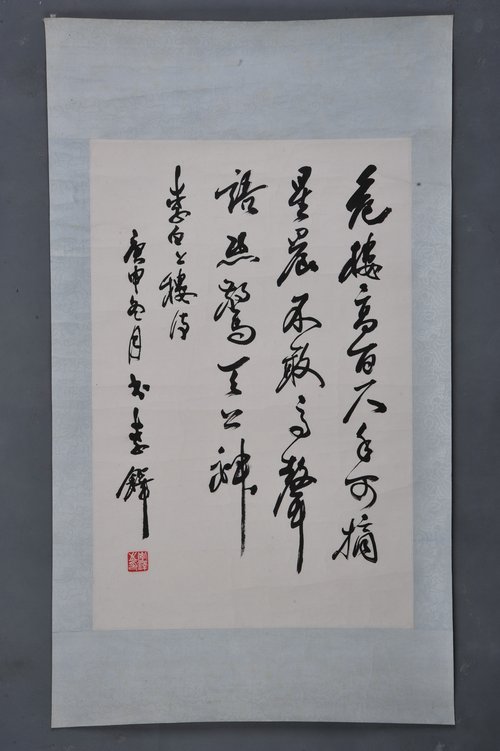 危樓高百尺手可摘
星辰不敢高聲
語恐驚天上神
李白上樓詩
庚申冬月书李鐸